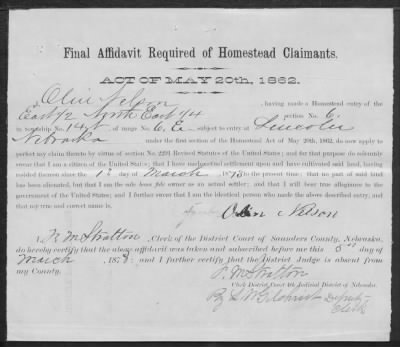 Final Affidavit Required of Homestead Claimants.
ACT OF MAY 20th, 1862.
I, Olin Nelson, having made a Homestead entry of the
East 1/2 North East 1/4 section No. 6
in township No. 14 of range No. 6 E. subject to entry at Lincoln
Nebraska under the first section of the Homestead Act of May 20th, 1862, do now apply to
perfect my claim thereto by virtue of section No. 2291 Revised Statutes of the United States; and for that purpose do solemnly
swear that I am a citizen of the United States; that I have made settlement upon and have cultivated said land, having
resided thereon since the 1st day of March 1873 to the present time; that no part of said land
has been alienated, but that I am the sole bona fide owner as an actual settler; and that I will bear true allegiance to the
government of the United States; and I further swear that I am the identical person who made the above described entry, and
that my true and correct name is,
Olin Nelson
I, P. M Stratton, Clerk of the District Court of Saunders County, Nebraska,
do hereby certify that the above affidavit was taken and subscribed before me this 5th day of
March 1878; and I further certify that the District Judge is absent from
my County.
P. M Stratton
Clerk District Court 4th Judicial District of Nebraska.
By S. W Gilchrist Deputy
Clerk